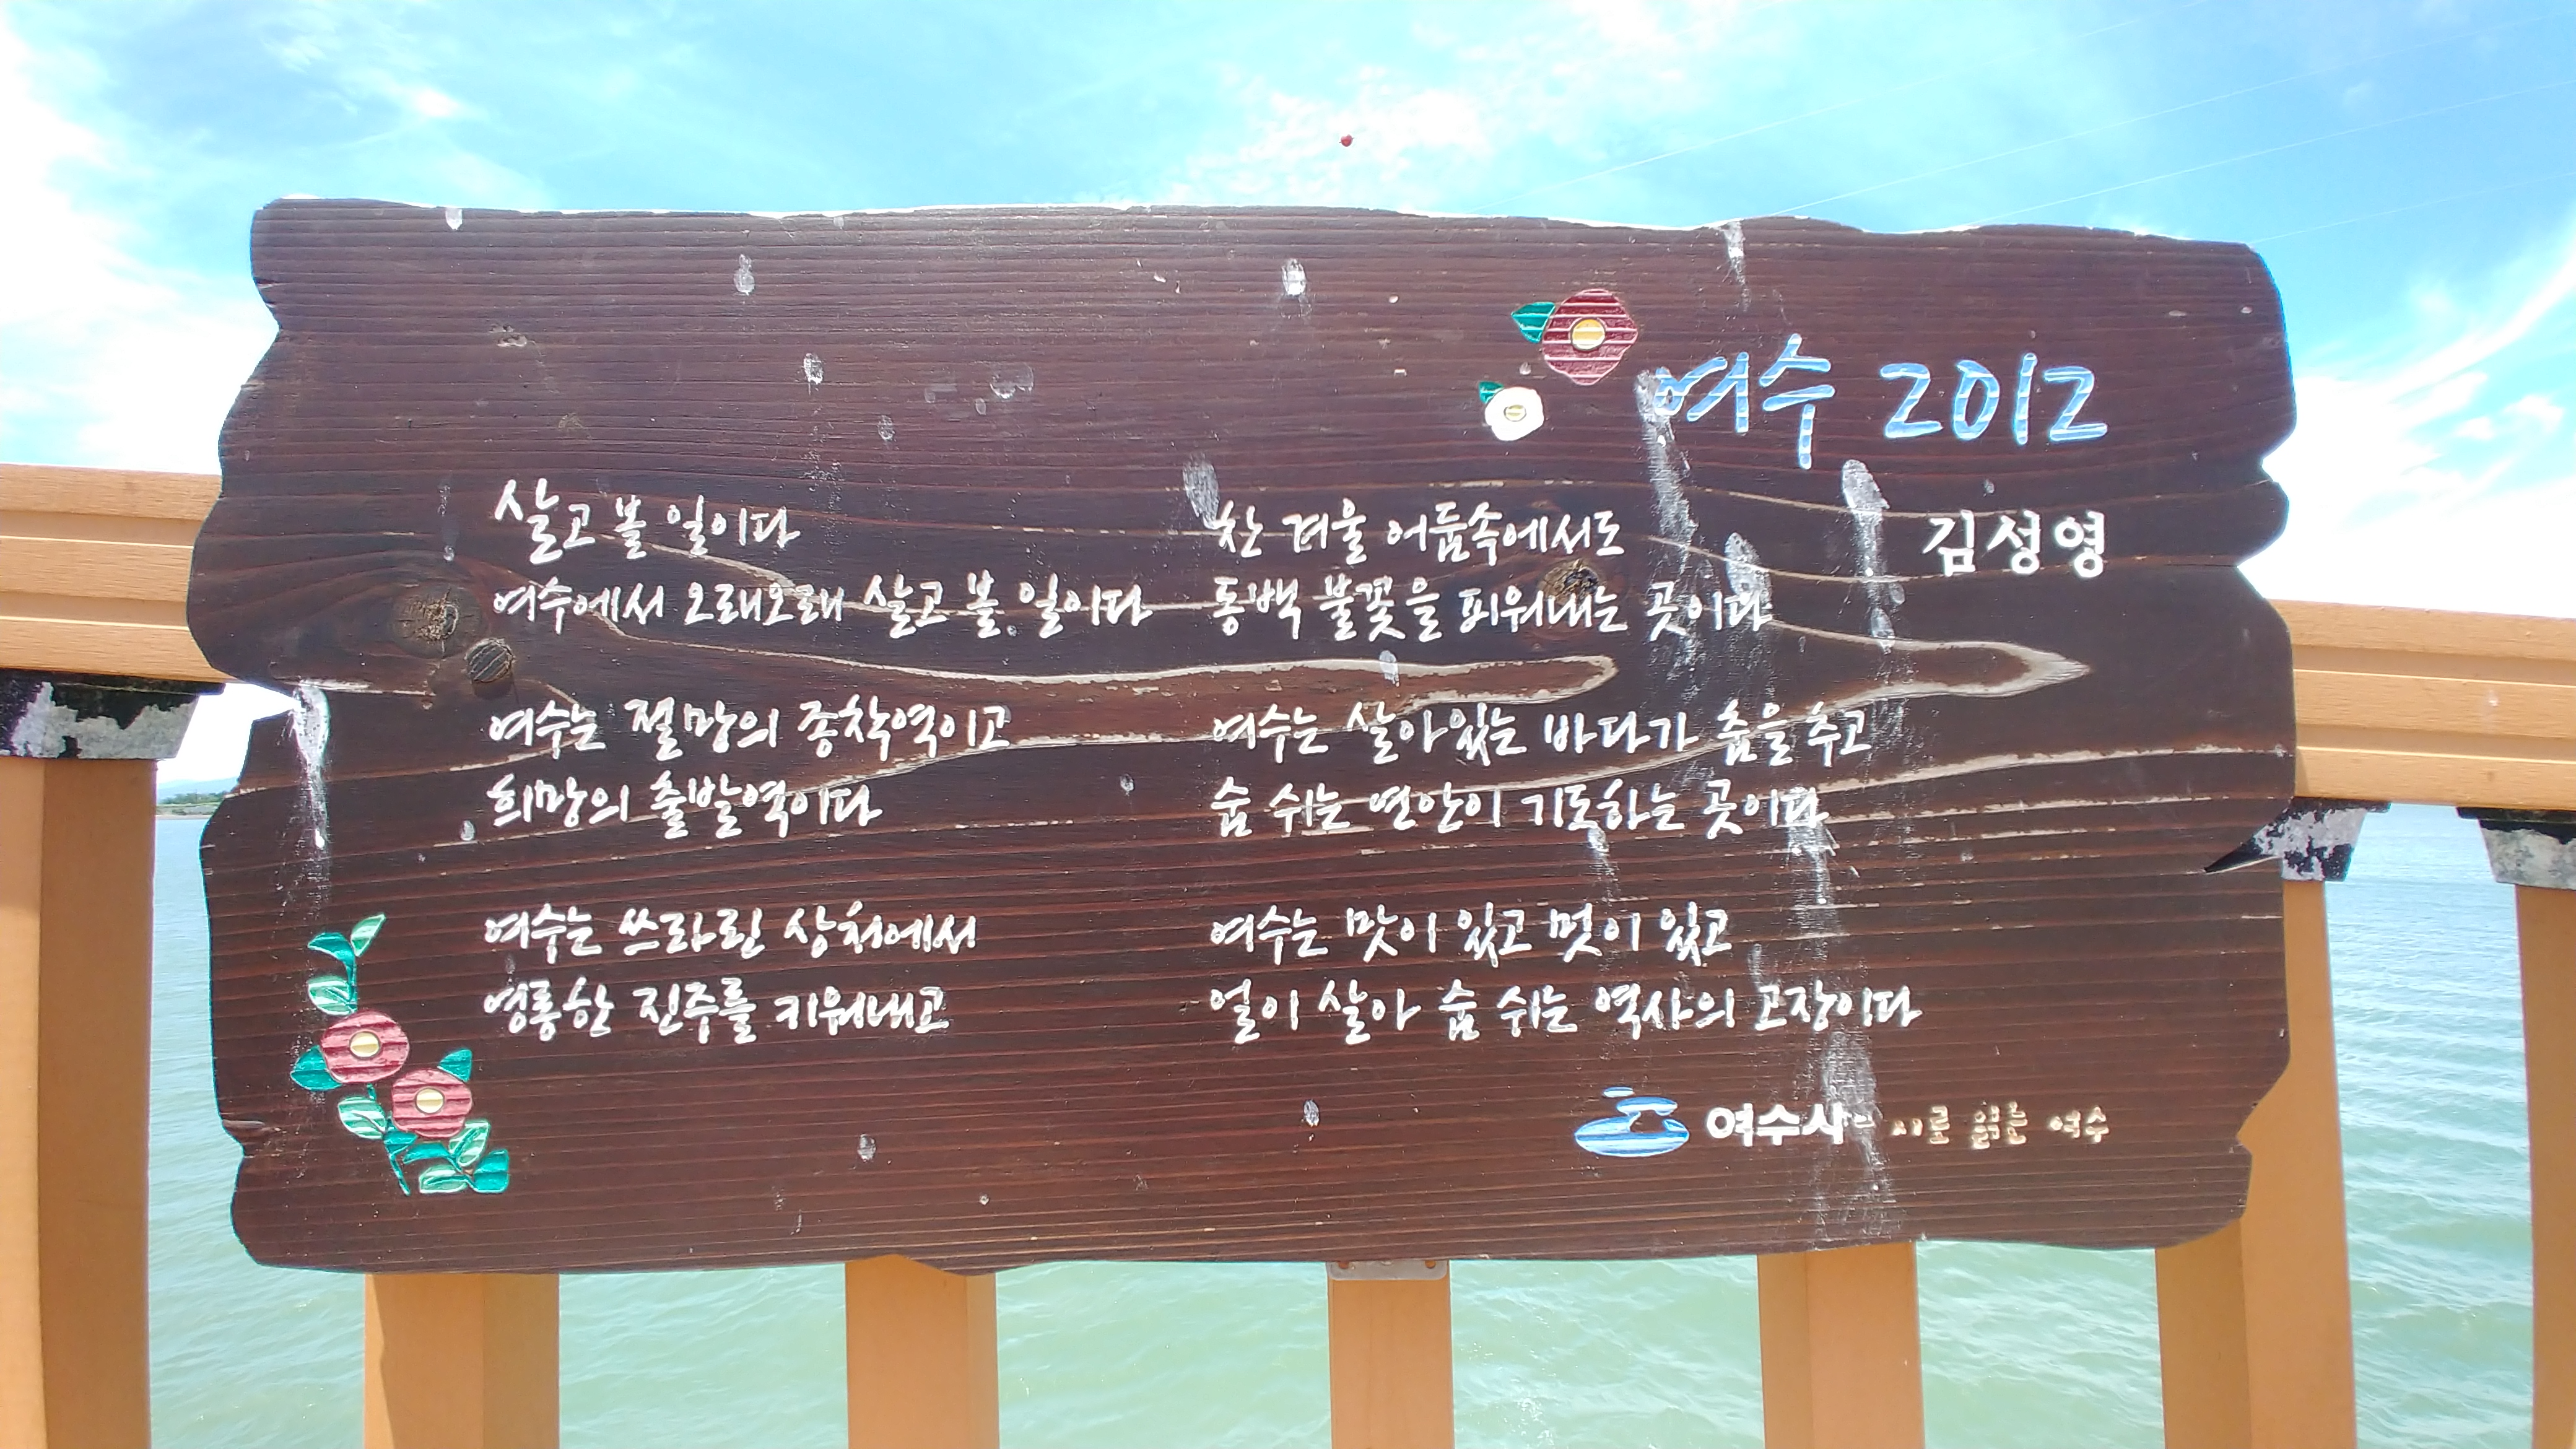 여수 2012
김성영
살고 볼 일이다
여수에서 오래오래 살고 볼 일이다
여수는 절망의 종착역이고
희망의 출발역이다
여수는 쓰라린 상처에서
영롱한 진주를 키워내고
찬 겨울 어둠속에서도
동백 불꽃을 피워내는 곳이다
여수는 살아있는 바다가 춤을 추고
숨 쉬는 연안이 기도하는 곳이다
여수는 맛이 있고 멋이 있고
얼이 살아 숨 쉬는 역사의 고장이다
여수시 시로 읽는 여수